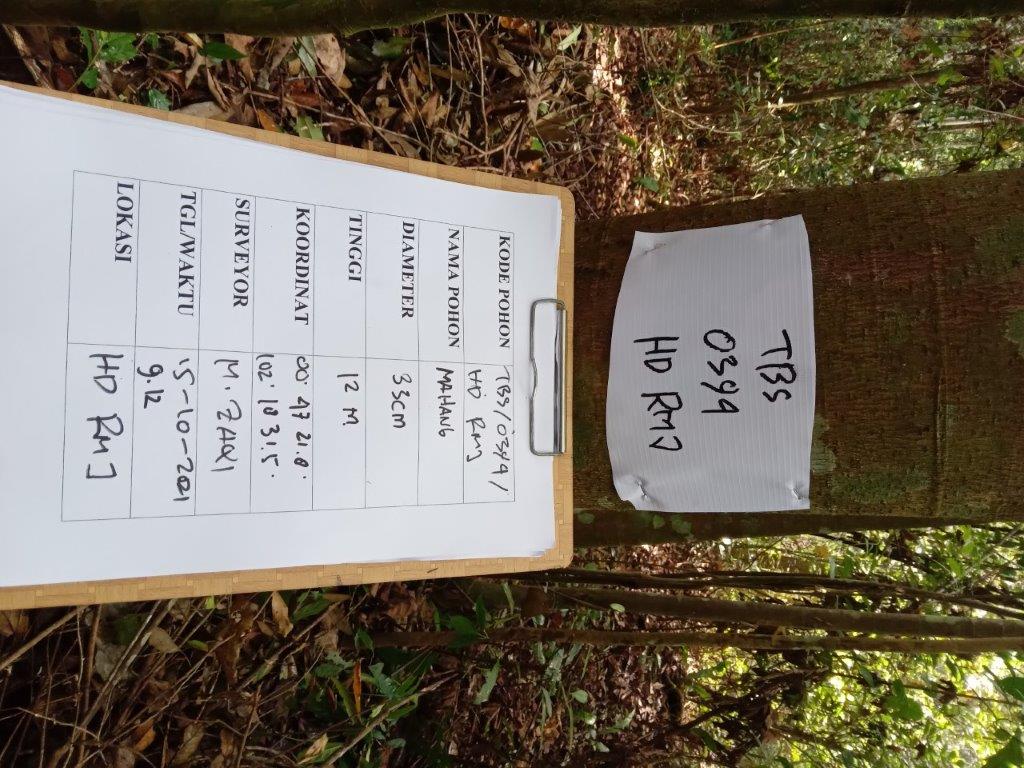 TBS
0394
HD RMJ
KODE POHON TBS/0394/
HD RMJ
NAMA POHON MAHANG
DIAMETER 33cm
TINGGI 12 M
KOORDINAT 00° 47 21.8"
102° 10 31.5"
SURVEYOR M. ZAQI
TGL/WAKTU 15-10-2021
9.12
LOKASI HD RMJ